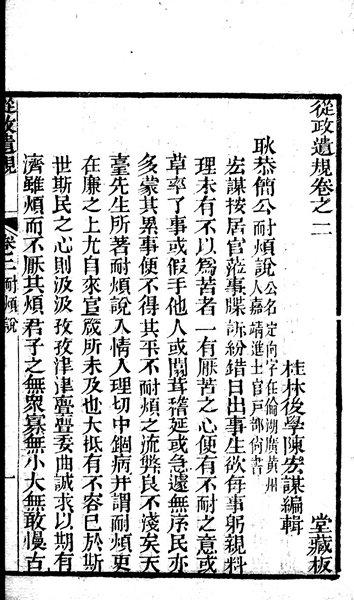 從政遺規卷之二　堂藏板
桂林後學陳宏謀編輯
耿恭簡公耐煩說 公名定向字在倫湖廣黃州
人嘉靖進士官戶部尚書
宏謀按居官蒞事牒訴紛錯日出事生欲每事躬親料
理未有不以為苦者一有厭苦之心便有不耐之意或
草率了事或假手他人或闒茸稽延或急遽無序民亦
多蒙其累事便不得其平不耐煩之流弊良不淺矣天
臺先生所著耐煩說入情入理切中錮病并謂耐煩更
在廉之上尤自來官箴所未及也大抵有不容已於斯
世斯民之心則汲汲孜孜津津亹亹委曲誠求以期有
濟雖煩而不厭其煩君子之無衆寡無小大無敢慢古
從政遺規　卷二　耐煩說　一